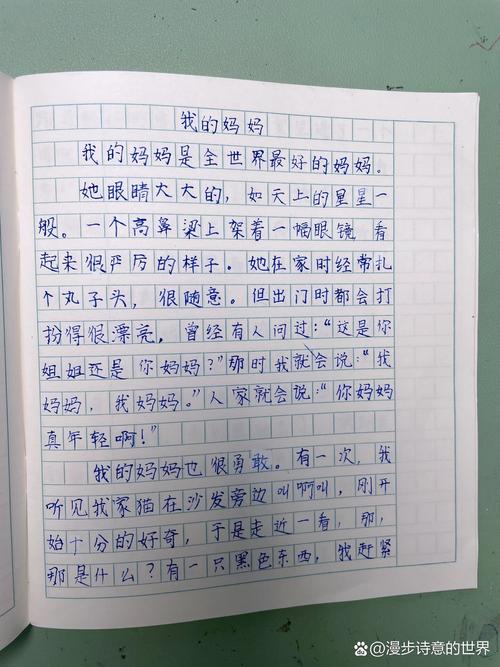 我的妈妈
我的妈妈是全世界最好的妈妈。
她眼睛大大的，如天上的星星一
般。一个高鼻梁上架着一幅眼镜，看
起来很严厉的样子。她在家时经常扎
个丸子头，很随意。但出门时都会打
扮得很漂亮，曾经有人问过：“这是你
姐姐还是你妈妈？”那时我就会说：“我
妈妈，我妈妈。”人家就会说：“你妈妈
真年轻啊！”
我的妈妈也很勇敢。有一次，我
听见我家猫在沙发旁边叫啊叫，刚开
始十分的好奇，于是走近一看，那，
那是什么？有一只黑色东西，我赶紧
漫步诗意的世界